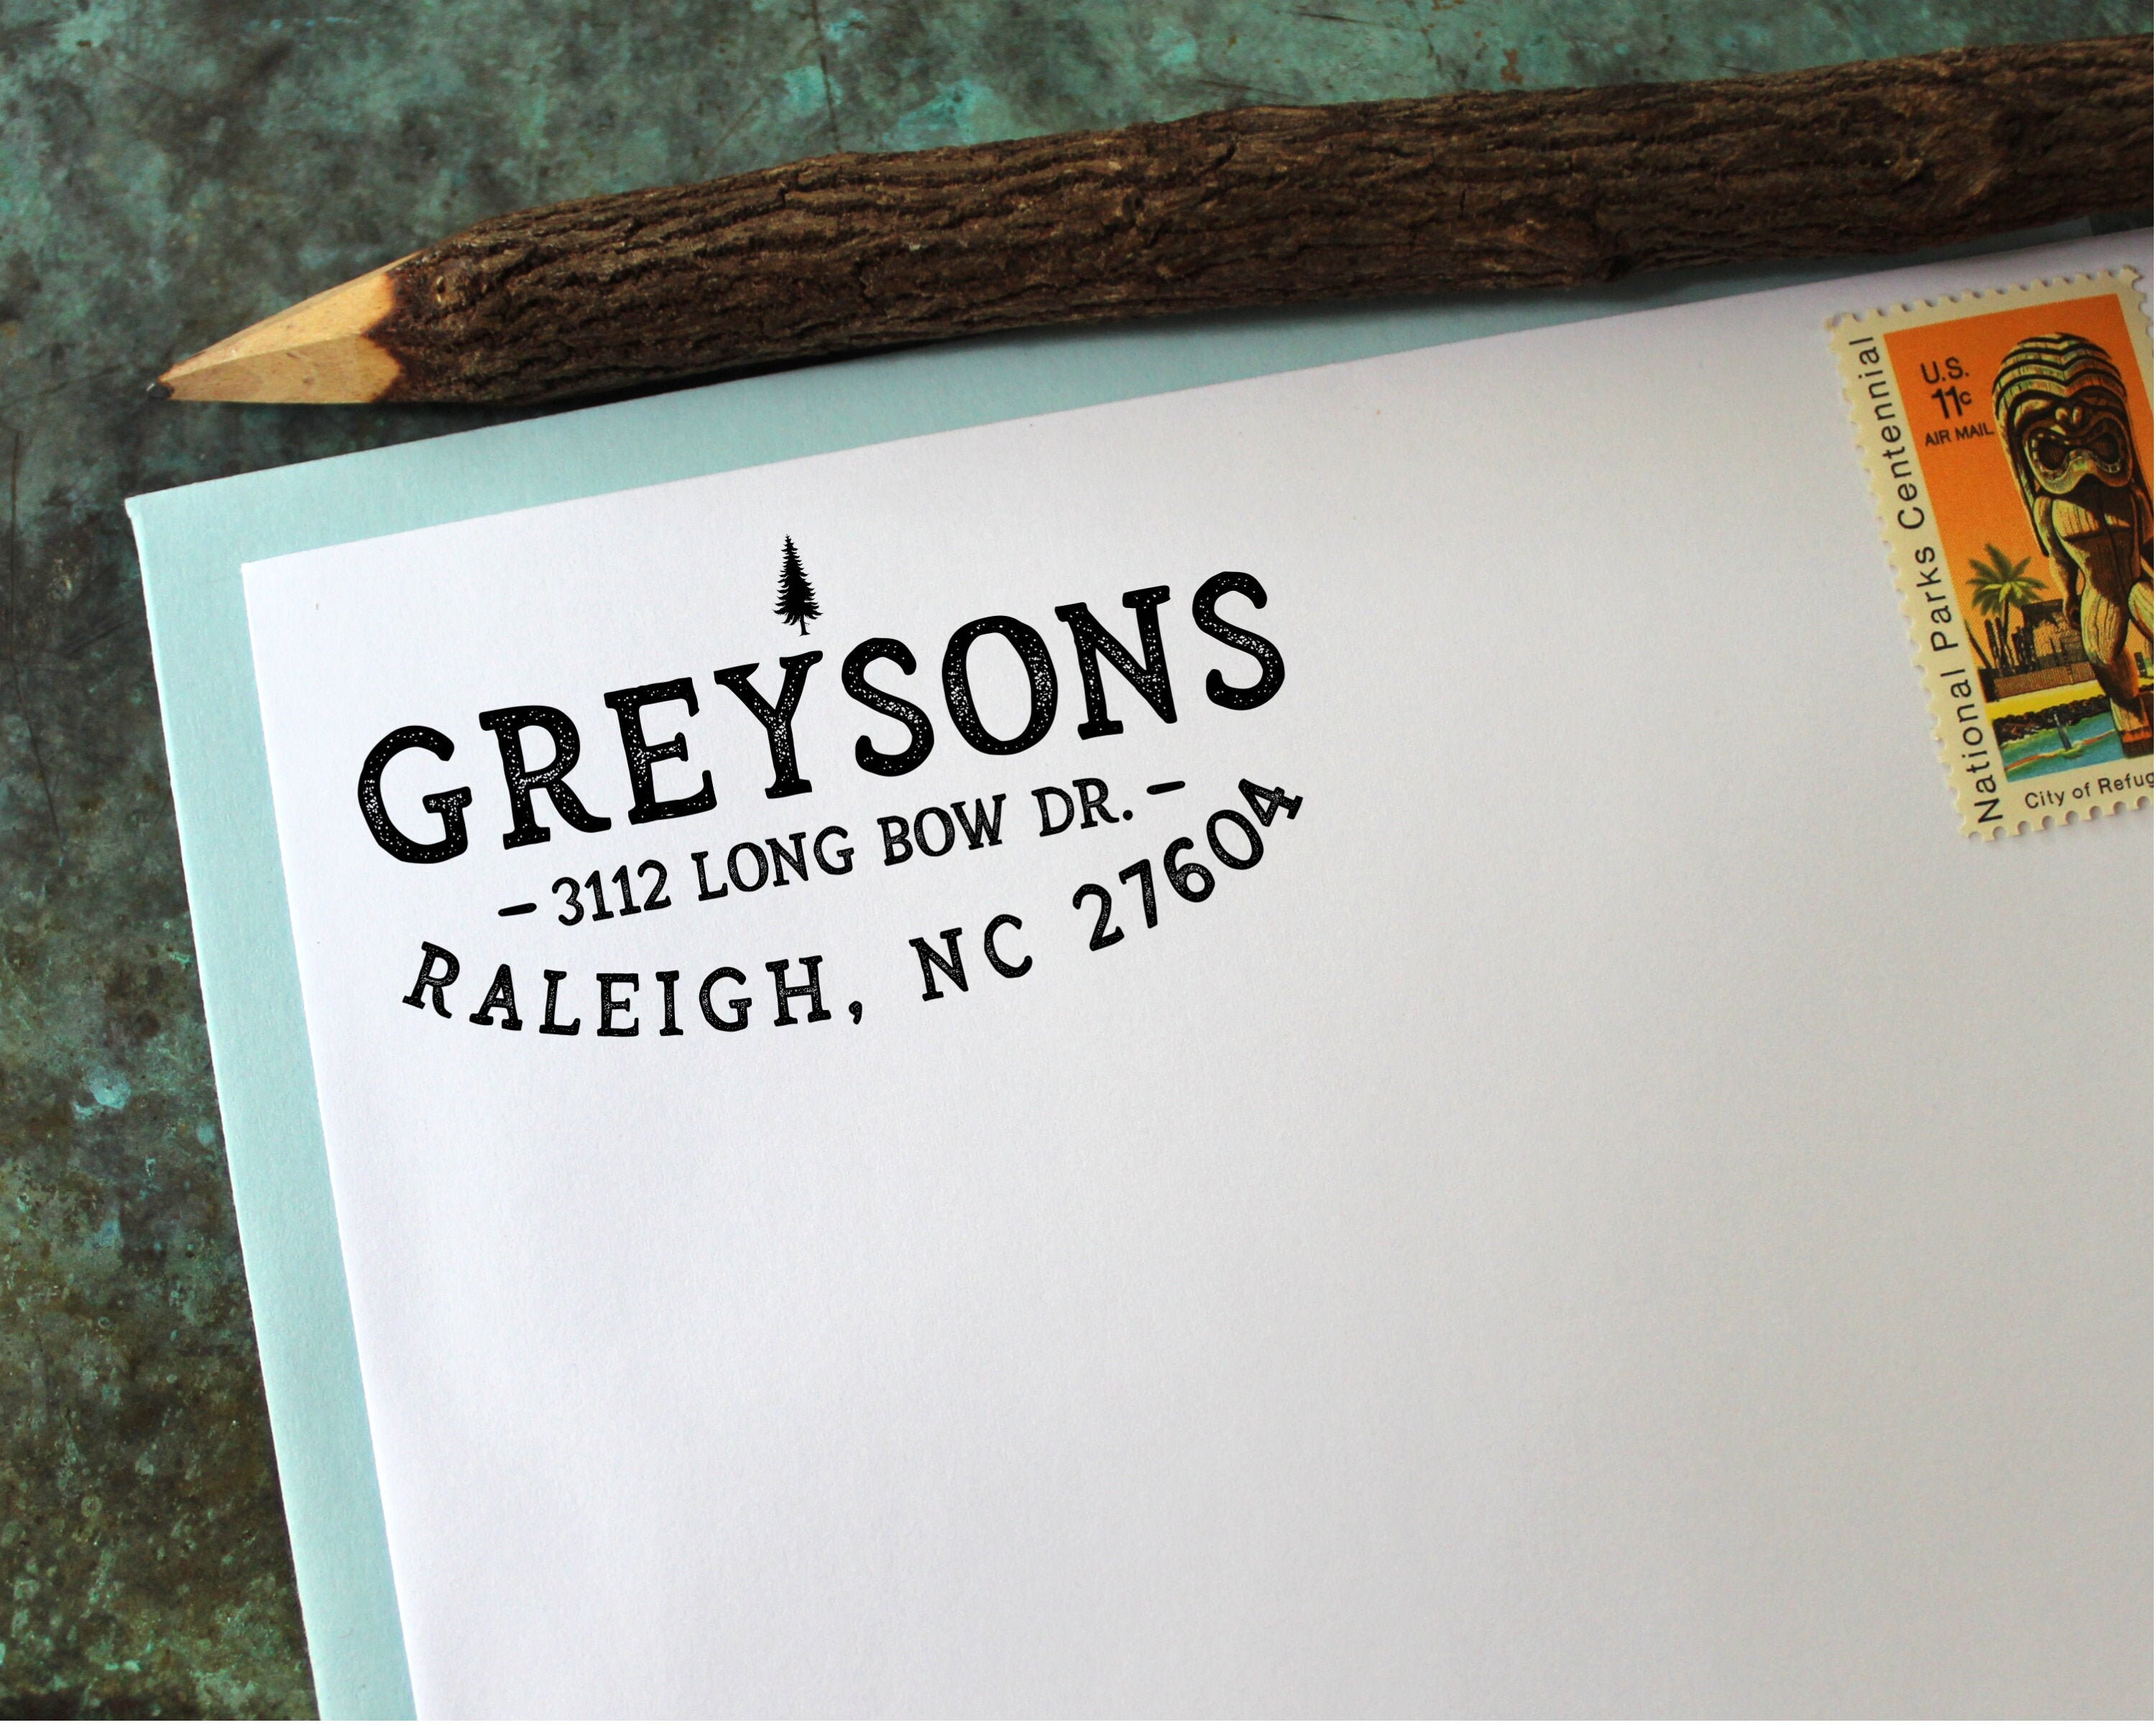 GREYSONS
– 3112 LONG BOW DR. –
RALEIGH, NC 27604
National Parks Centennial
U.S.
11c
AIR MAIL
City of